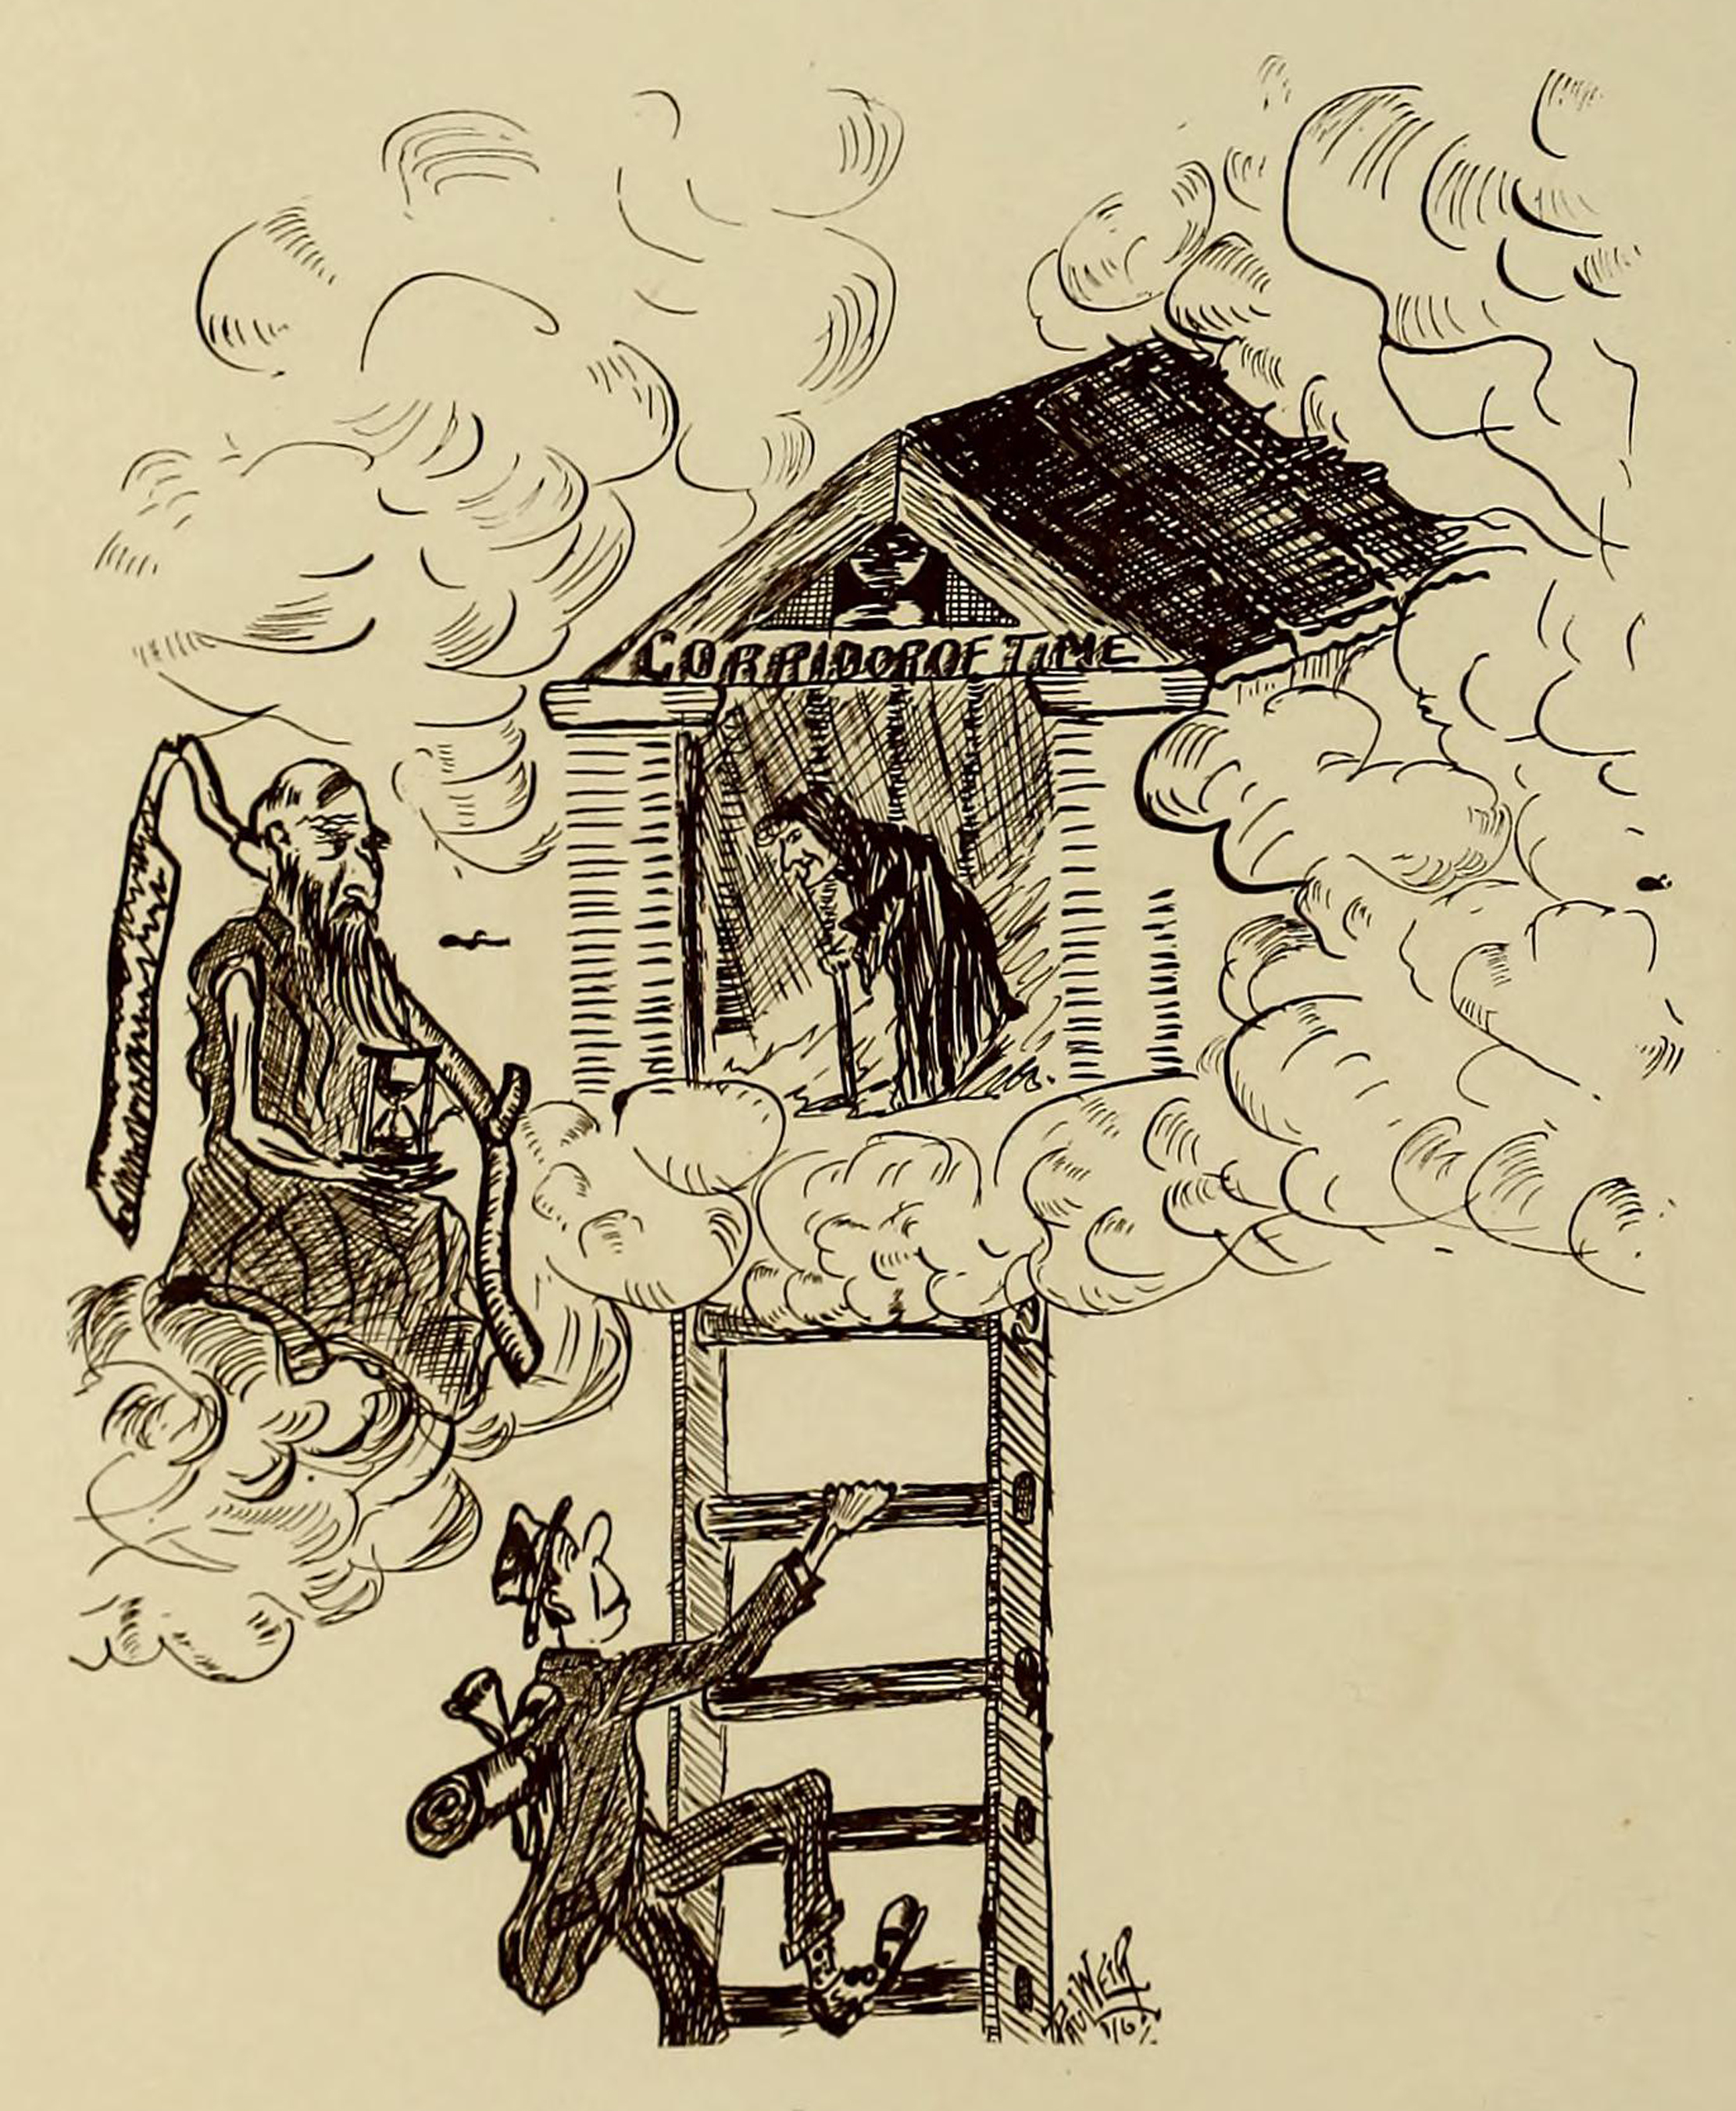 CORRIDOR OF TIME
PAUL WEIR